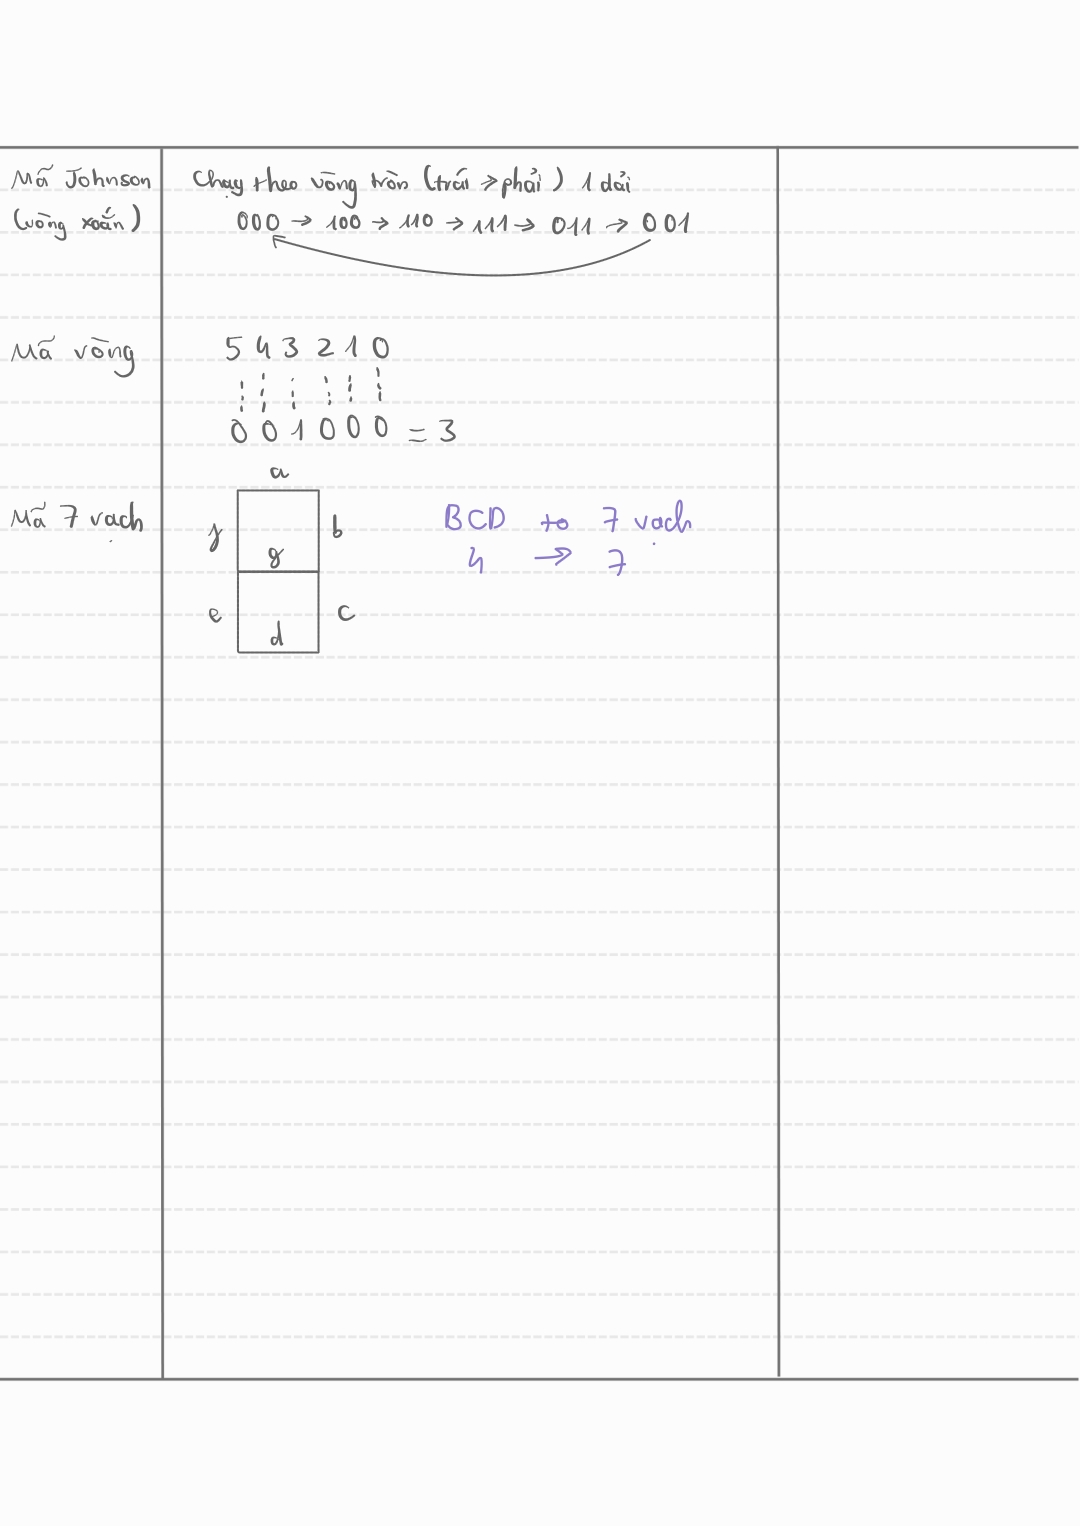 Mã Johnson
(vòng xoắn)
Chạy theo vòng tròn (trái → phải) 1 dải
000 → 100 → 110 → 111 → 011 → 001
Mã vòng
5 4 3 2 1 0
0 0 1 0 0 0 = 3
Mã 7 vạch
a
f b
g
e c
d
BCD to 7 vạch
4 → 7